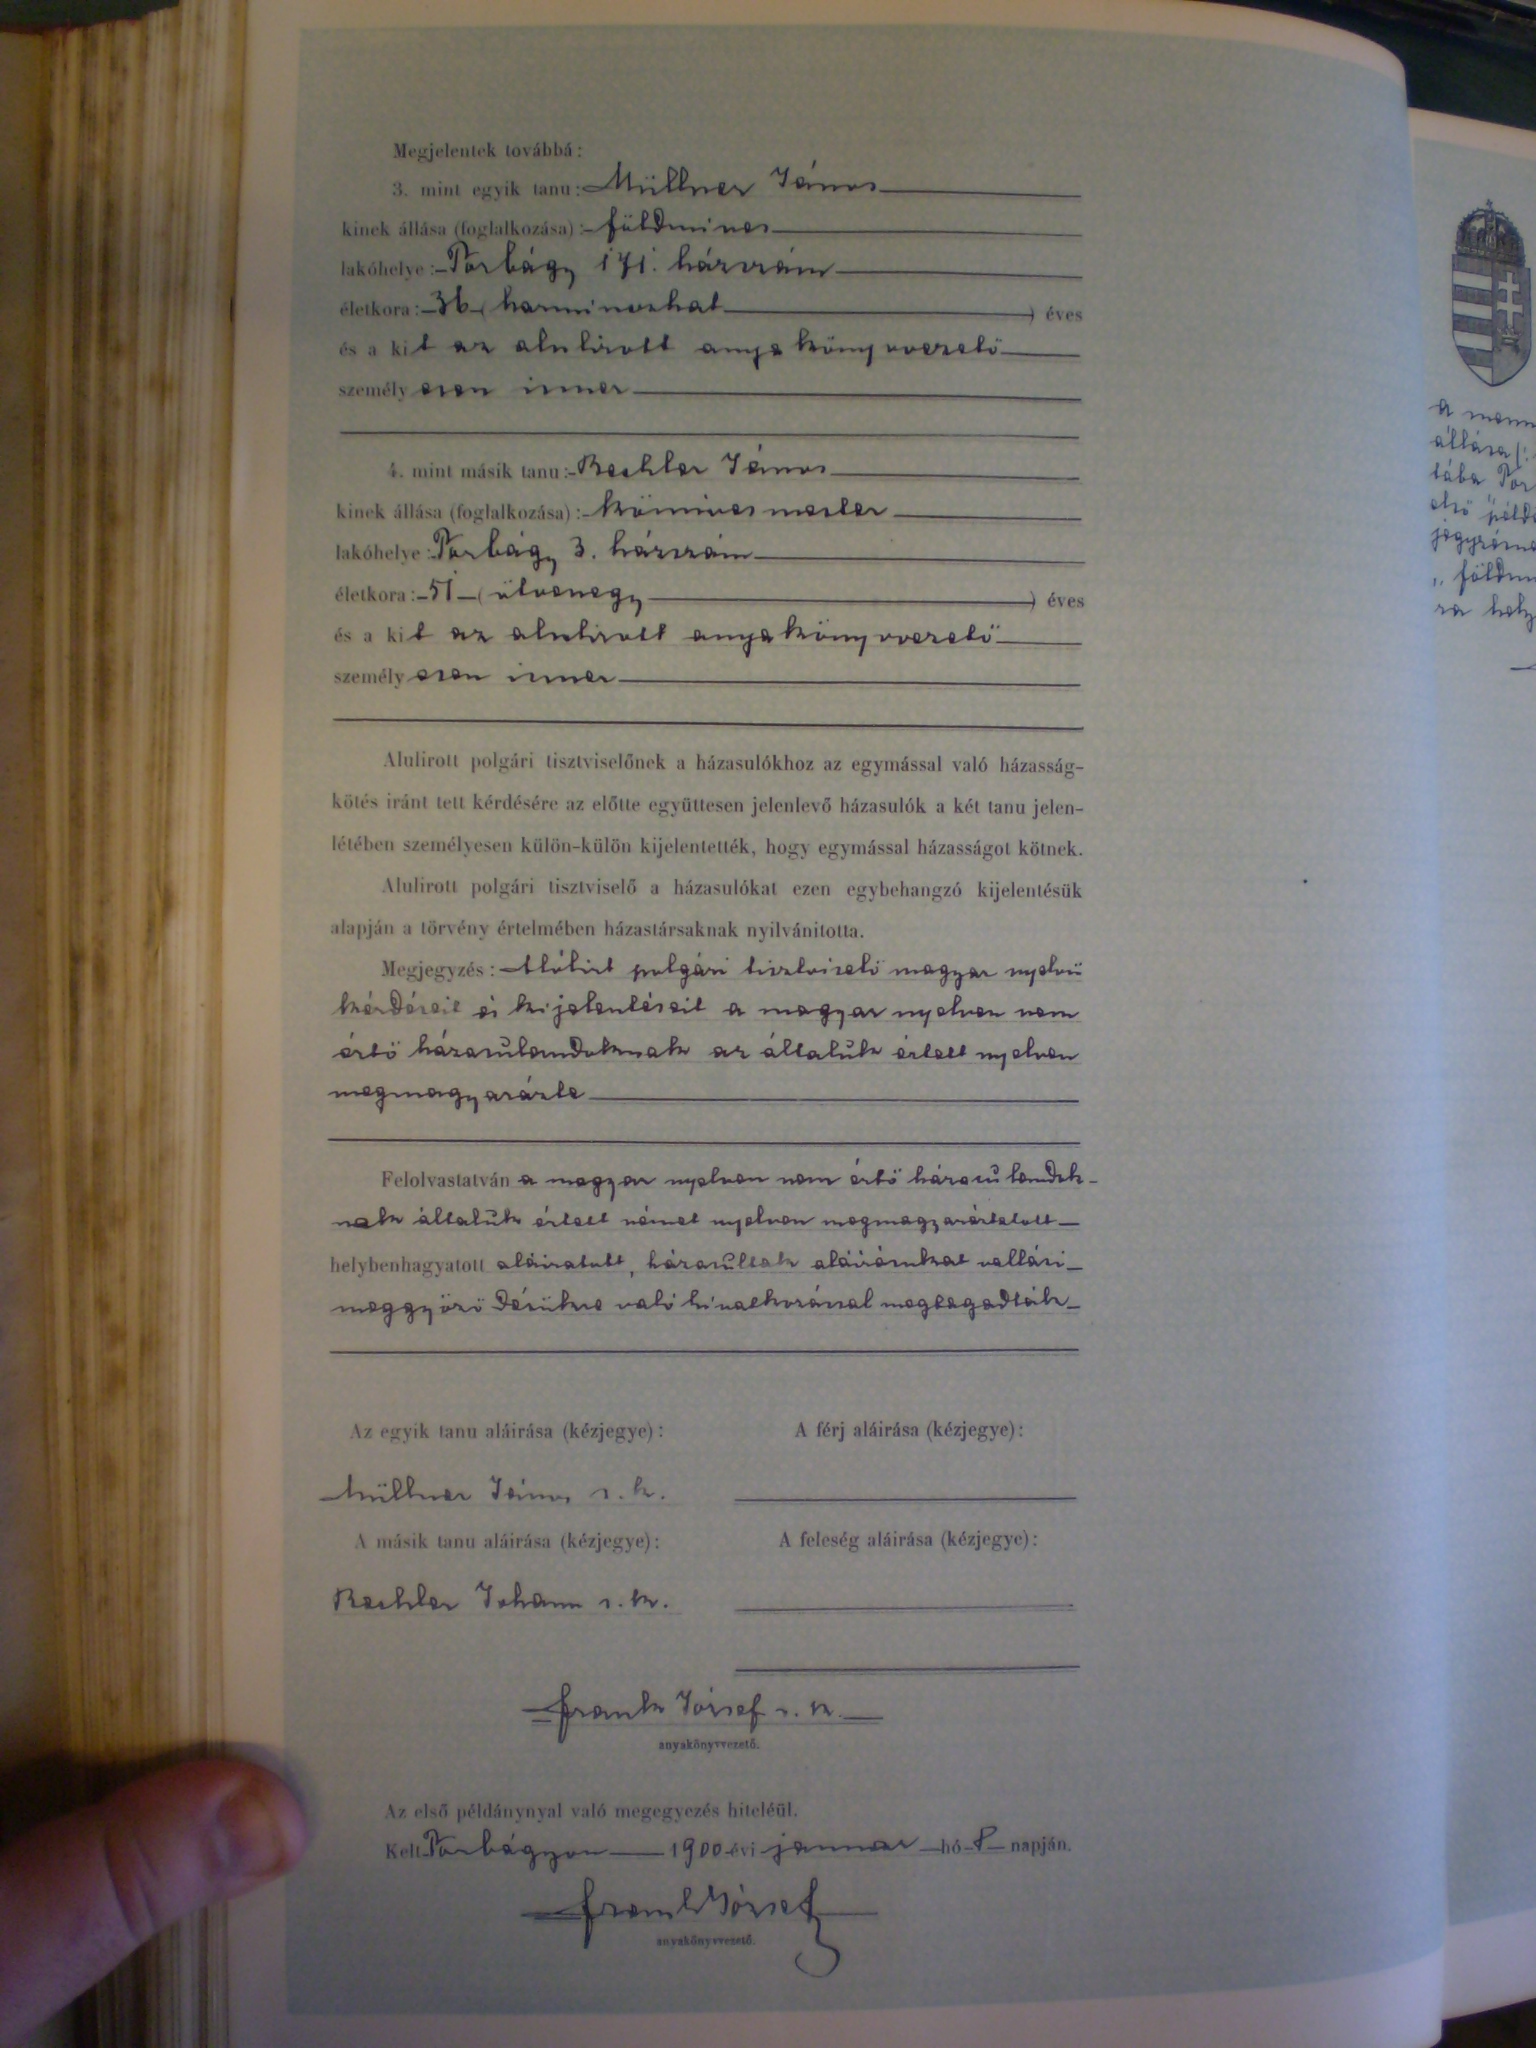 Megjelentek továbbá:
3. mint egyik tanu: Müllner János
kinek állása (foglalkozása): földmives
lakóhelye: Torbágy 171. házszám
életkora: 36 (harminczhat) éves
és a kit az alulirott anyakönyvvezető
személyesen ismer
4. mint másik tanu: Bechler János
kinek állása (foglalkozása): kőmives mester
lakóhelye: Torbágy 3. házszám
életkora: 51 (ötvenegy) éves
és a kit az alulirott anyakönyvvezető
személyesen ismer
Alulirott polgári tisztviselőnek a házasulókhoz az egymással való házasság-
kötés iránt tett kérdésére az előtte együttesen jelenlevő házasulók a két tanu jelen-
létében személyesen külön-külön kijelentették, hogy egymással házasságot kötnek.
Alulirott polgári tisztviselő a házasulókat ezen egybehangzó kijelentésük
alapján a törvény értelmében házastársaknak nyilvánitotta.
Megjegyzés: Alólirt polgári tisztviselő magyar nyelvü
kérdéseit és kijelentéseit a magyar nyelven nem
értő házasulandoknak az általuk értett nyelven
megmagyarázta
Felolvastatván a magyar nyelven nem értő házasulandok-
nak általuk értett német nyelven megmagyaráztatott
helybenhagyatott aláiratott, házasultak aláirásukat vallási
meggyőződésükre való hivatkozással megtagadták
Az egyik tanu aláirása (kézjegye): A férj aláirása (kézjegye):
Müllner János s. k.
A másik tanu aláirása (kézjegye): A feleség aláirása (kézjegye):
Bechler Johann s. k.
Frank József s. k.
anyakönyvvezető.
Az első példánynyal való megegyezés hiteléül.
Kelt Torbágyon 1900 évi januar hó 8 napján.
Frank József
anyakönyvvezető.
a
állása
tába Tor
első péld
" földm
ra hely